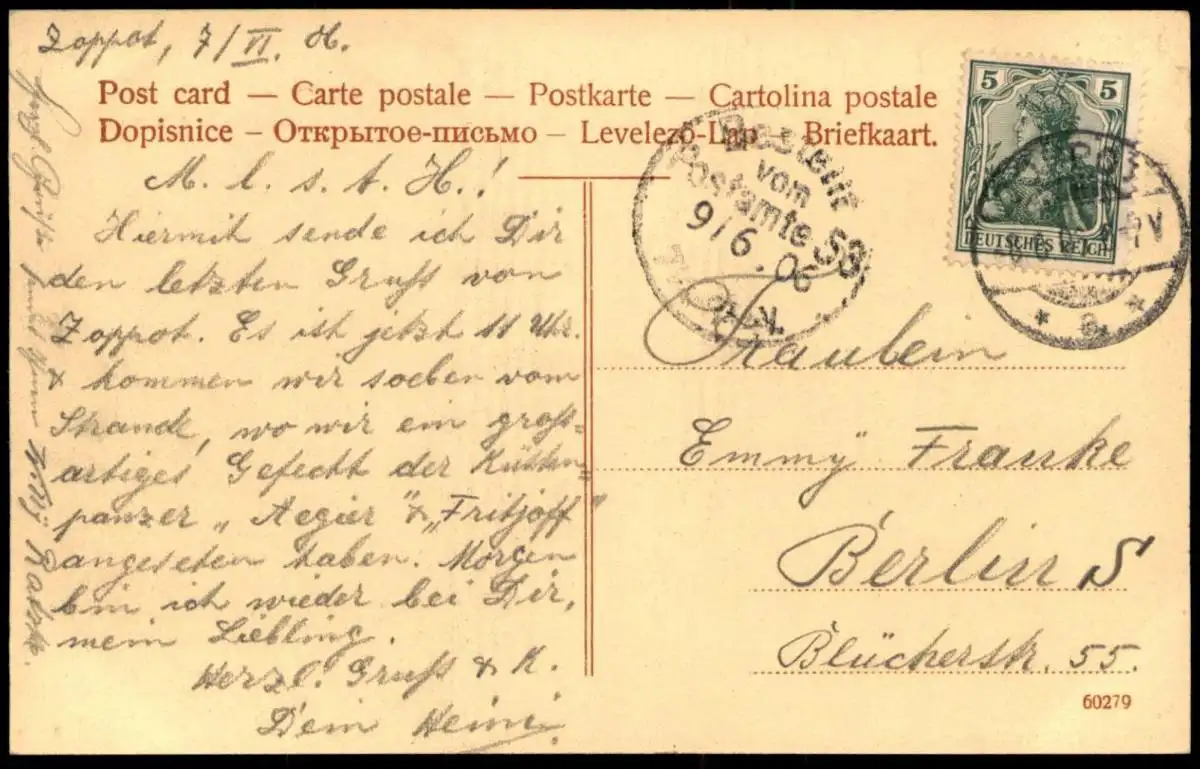 Zoppot, 7/VI. 06.
Post card — Carte postale — Postkarte — Cartolina postale
Dopisnice – Открытое-письмо – Levelező-Lap – Briefkaart.
M. l. s. t. H.!
Hiermit sende ich Dir
den letzten Gruß von
Zoppot. Es ist jetzt 11 Uhr.
& kommen wir soeben vom
Strande, wo wir ein groß=
artiges Gefecht der Küsten
panzer „Aegier" & „Fritjoff"
angesehen haben. Morgen
bin ich wieder bei Dir,
mein Liebling.
Herzl. Gruß & K.
Dein Heini
Herzl. Grüße
5 5
DEUTSCHES REICH
Bestellt
vom
Postamte 58
9/6. 06
Fräulein
Emmÿ Franke
Berlin S
Blücherstr. 55.
60279